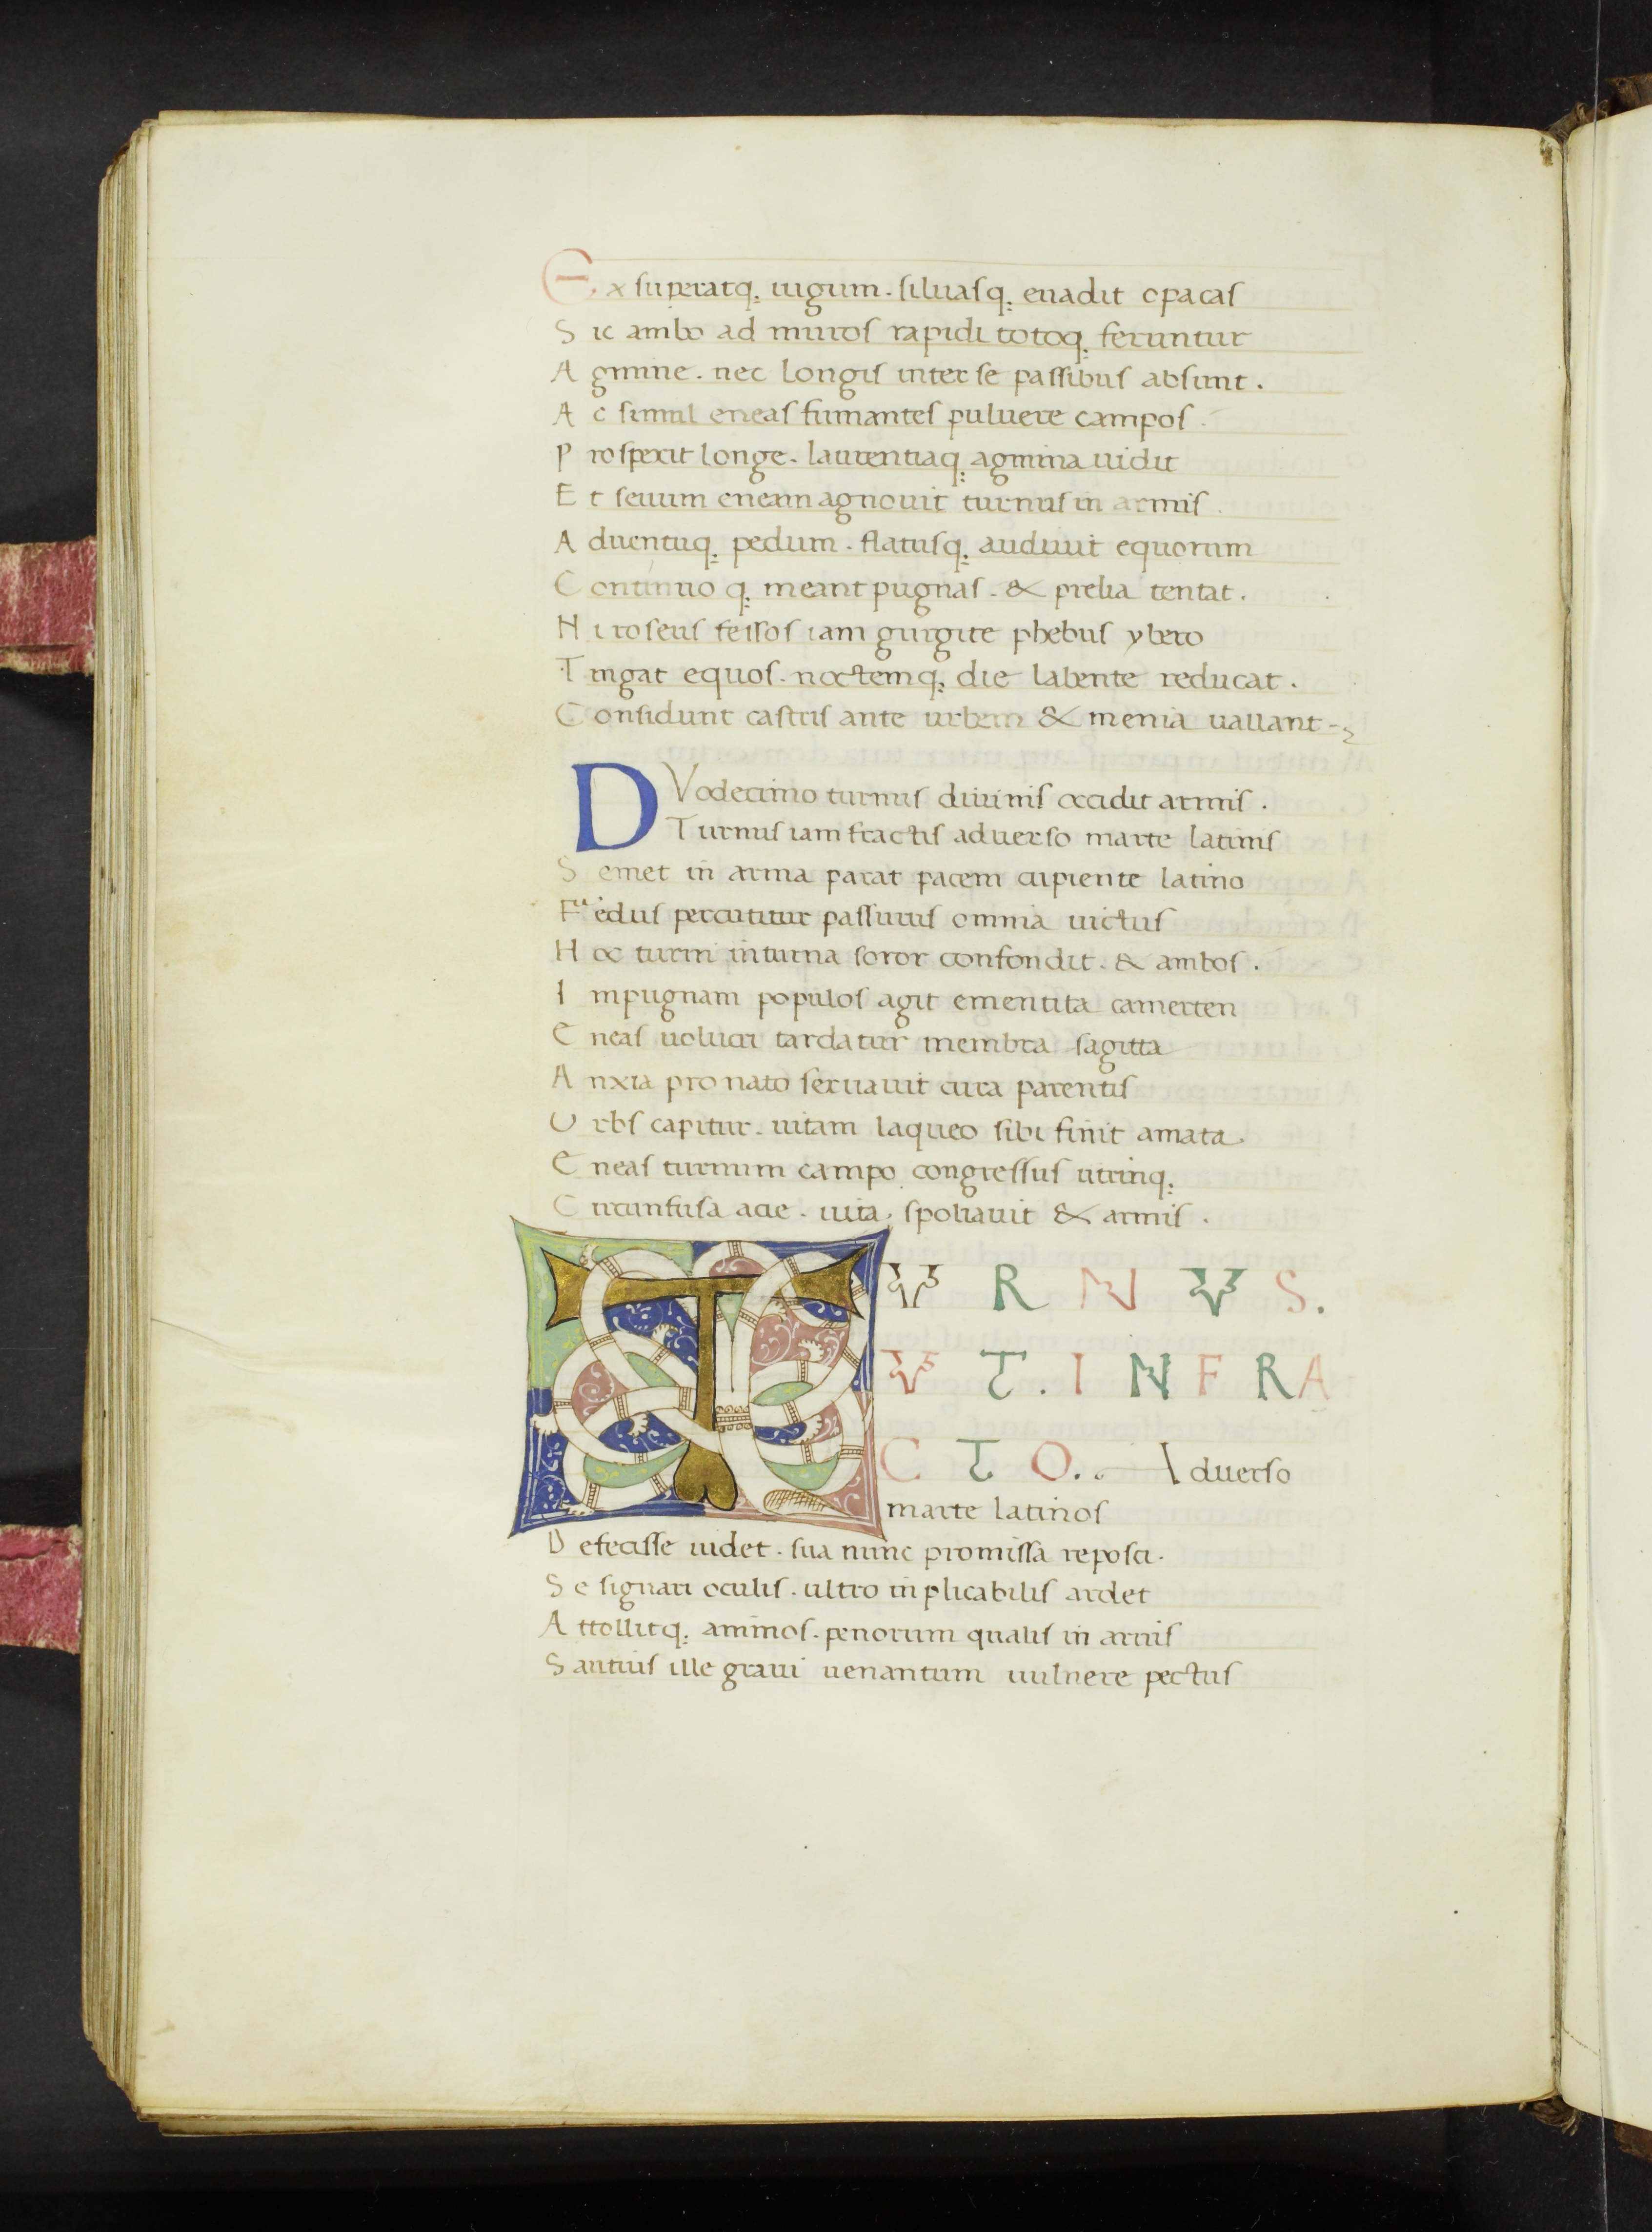 Ex superatq. iugum. siluasq. euadit opacas
Sic ambo ad muros rapidi totoq. feruntur
Agmine. nec longis inter se passibus absunt.
Ac simul eneas fumantes puluere campos.
Prospexit longe. laurentiaq. agmina uidit
Et seuum eneam agnouit turnus in armis.
Aduentuq. pedum. flatusq. audiuit equorum
Continuo q. meant pugnas. & prelia tentat.
Ni roseus fessos iam gurgite phebus ybero
Tingat equos. noctemq. die labente reducat.
Considunt castris ante urbem & menia uallant
DVodecimo turnus diuinis occidit armis.
Turnus iam fractis aduerso marte latinis
Semet in arma parat pacem cupiente latino
Fuedus percutitur passurus omnia uictus
Hoc turni inturna soror confondit. & ambos.
Impugnam populos agit ementita camerten
Eneas uolucri tardatur membra sagitta
Anxia pro nato seruauit cura parentis
Urbs capitur. uitam laqueo sibi finit amata.
Eneas turnum campo congressus utrinq.
Circunfusa acie. uita. spoliauit & armis.
TVRNVS.
VT. INFRA
CTO. Aduerso
marte latinos
Defecisse uidet. sua nunc promissa reposci.
Se signari oculis. ultro inplicabilis ardet
Attollitq. animos. penorum qualis in aruis
Sautius ille graui uenantum uulnere pectus